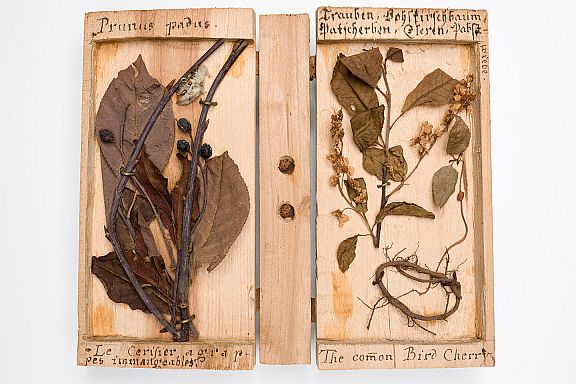 Prunus padus.
Trauben, Vohskirschbaum,
Patscherben, Oleren, Pabst
Le Cerisier a grap-
pes immangeables.
The com̄on Bird Cherry